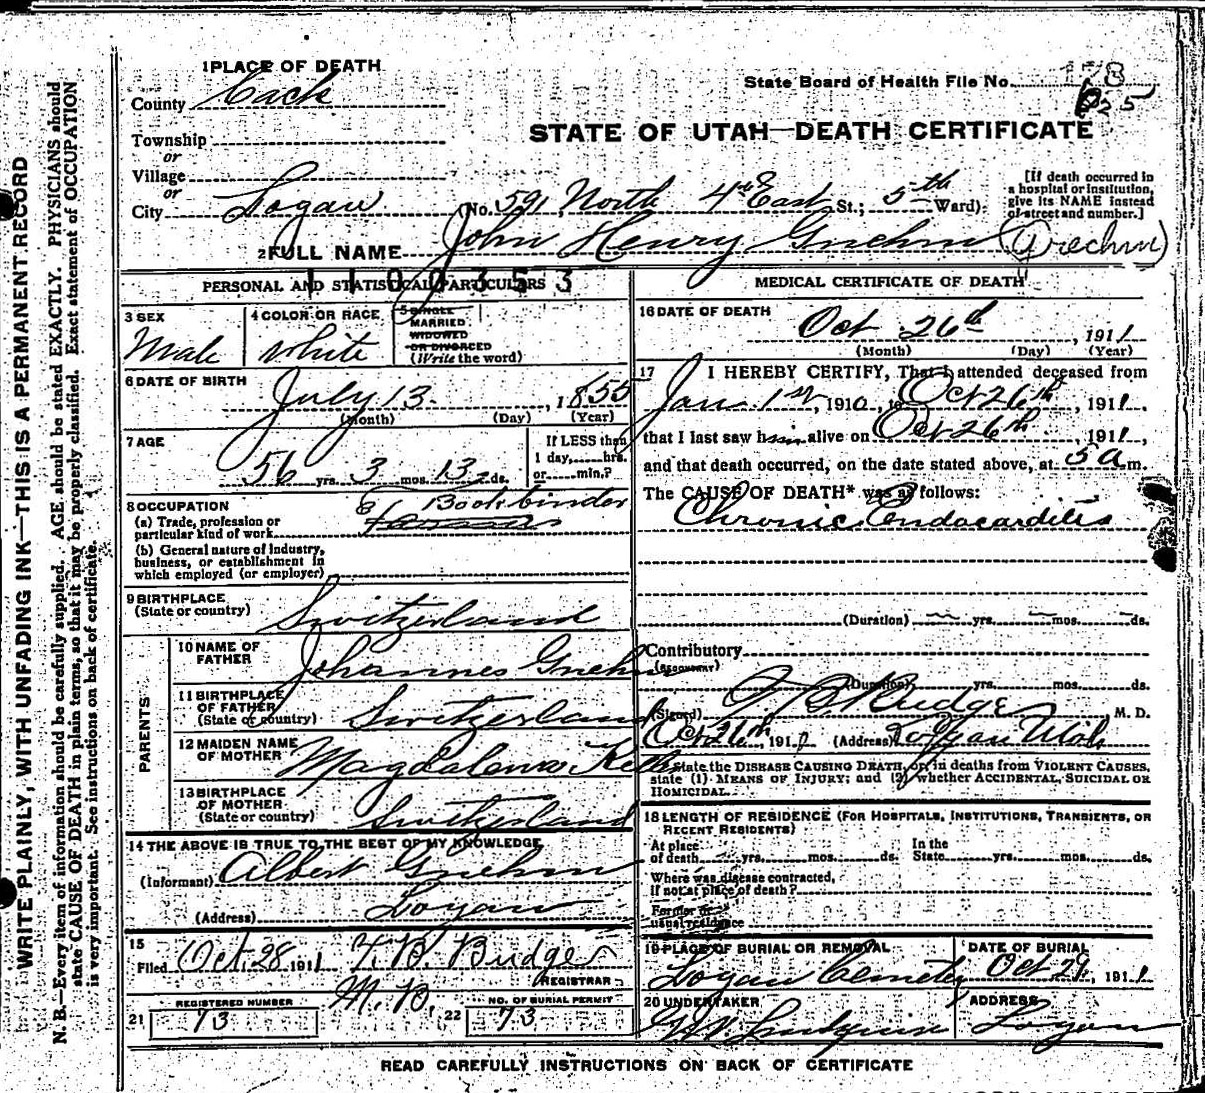 WRITE PLAINLY, WITH UNFADING INK—THIS IS A PERMANENT RECORD
N. B.—Every item of information should be carefully supplied. AGE should be stated EXACTLY. PHYSICIANS should
state CAUSE OF DEATH in plain terms, so that it may be properly classified. Exact statement of OCCUPATION
is very important. See instructions on back of certificate.
1 PLACE OF DEATH
County Cach
State Board of Health File No.
STATE OF UTAH—DEATH CERTIFICATE
Township
or
Village
or
City Logan (No. 591, North 4th East St.; 5th Ward)
[If death occurred in
a hospital or institution,
give its NAME instead
of street and number.]
2 FULL NAME John Henry Gnehm (Grechm)
1100353
PERSONAL AND STATISTICAL PARTICULARS
3 SEX
Male
4 COLOR OR RACE
White
5 SINGLE
MARRIED
WIDOWED
OR DIVORCED
(Write the word)
6 DATE OF BIRTH
July 13, 1855
(Month) (Day) (Year)
7 AGE
56 yrs. 3 mos. 13 ds.
If LESS than
1 day, hrs.
or min.?
8 OCCUPATION
(a) Trade, profession or
particular kind of work Bookbinder
(b) General nature of industry,
business, or establishment in
which employed (or employer)
9 BIRTHPLACE
(State or country) Switzerland
PARENTS
10 NAME OF
FATHER Johannes Gnehm
11 BIRTHPLACE
OF FATHER
(State or country) Switzerland
12 MAIDEN NAME
OF MOTHER Magdalena
13 BIRTHPLACE
OF MOTHER
(State or country) Switzerland
14 THE ABOVE IS TRUE TO THE BEST OF MY KNOWLEDGE
(Informant) Albert Gnehm
(Address) Logan
15
Filed Oct. 28 1911 T. B. Budge
M. D. REGISTRAR
REGISTERED NUMBER
21 73
NO. OF BURIAL PERMIT
22 73
MEDICAL CERTIFICATE OF DEATH
16 DATE OF DEATH
Oct 26th, 1911
(Month) (Day) (Year)
17 I HEREBY CERTIFY, That I attended deceased from
Jan 1st, 1910, to Oct 26th, 1911,
that I last saw him alive on Oct 26th, 1911,
and that death occurred, on the date stated above, at 5 a m.
The CAUSE OF DEATH* was as follows:
Chronic Endocarditis
(Duration) yrs. mos. ds.
Contributory
(SECONDARY)
(Duration) yrs. mos. ds.
(Signed) T B Budge M. D.
Oct 26th, 191 (Address) Logan Utah
*State the DISEASE CAUSING DEATH, or, in deaths from VIOLENT CAUSES,
state (1) MEANS OF INJURY; and (2) whether ACCIDENTAL, SUICIDAL OR
HOMICIDAL.
18 LENGTH OF RESIDENCE (FOR HOSPITALS, INSTITUTIONS, TRANSIENTS, OR
RECENT RESIDENTS)
At place
of death yrs. mos. ds.
In the
State yrs. mos. ds.
Where was disease contracted,
If not at place of death?
Former or
usual residence
19 PLACE OF BURIAL OR REMOVAL
Logan Cemetery
DATE OF BURIAL
Oct 29, 1911
20 UNDERTAKER
ADDRESS
Logan
READ CAREFULLY INSTRUCTIONS ON BACK OF CERTIFICATE